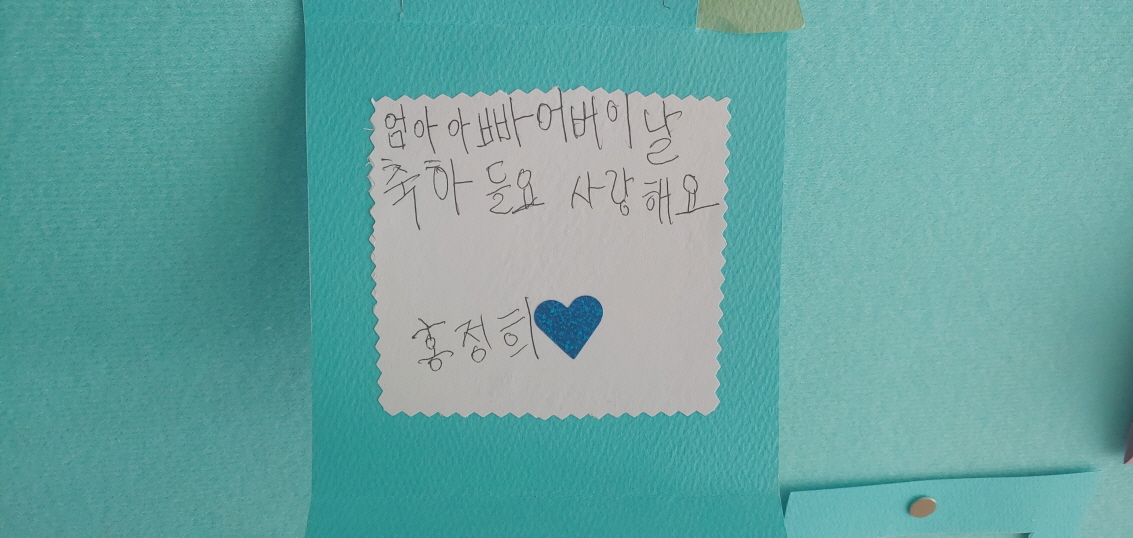 엄아 아빠 어버이날
축하 들요 사랑해요
홍정희